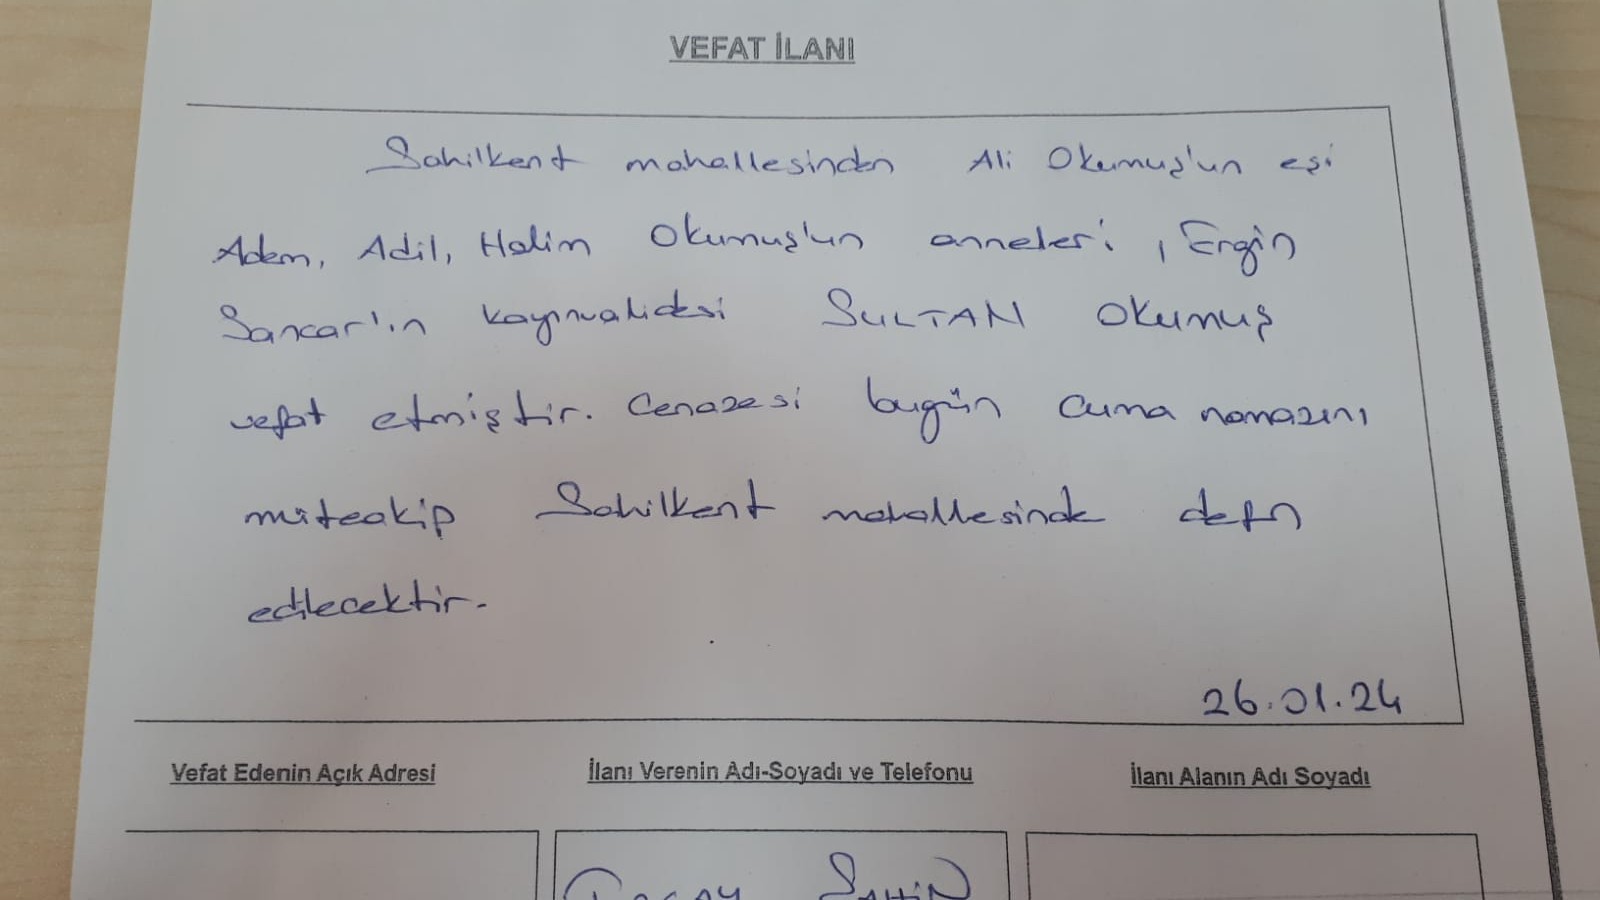 VEFAT İLANI
Sahilkent mahallesinden Ali Okumuş'un eşi
Adem, Adil, Halim Okumuş'un anneleri, Ergin
Sancar'ın kayınvalidesi SULTAN Okumuş
vefat etmiştir. Cenazesi bugün Cuma namazını
müteakip Sahilkent mahallesinde defn
edilecektir.
26.01.24
Vefat Edenin Açık Adresi İlanı Verenin Adı-Soyadı ve Telefonu İlanı Alanın Adı Soyadı
ŞAHİN